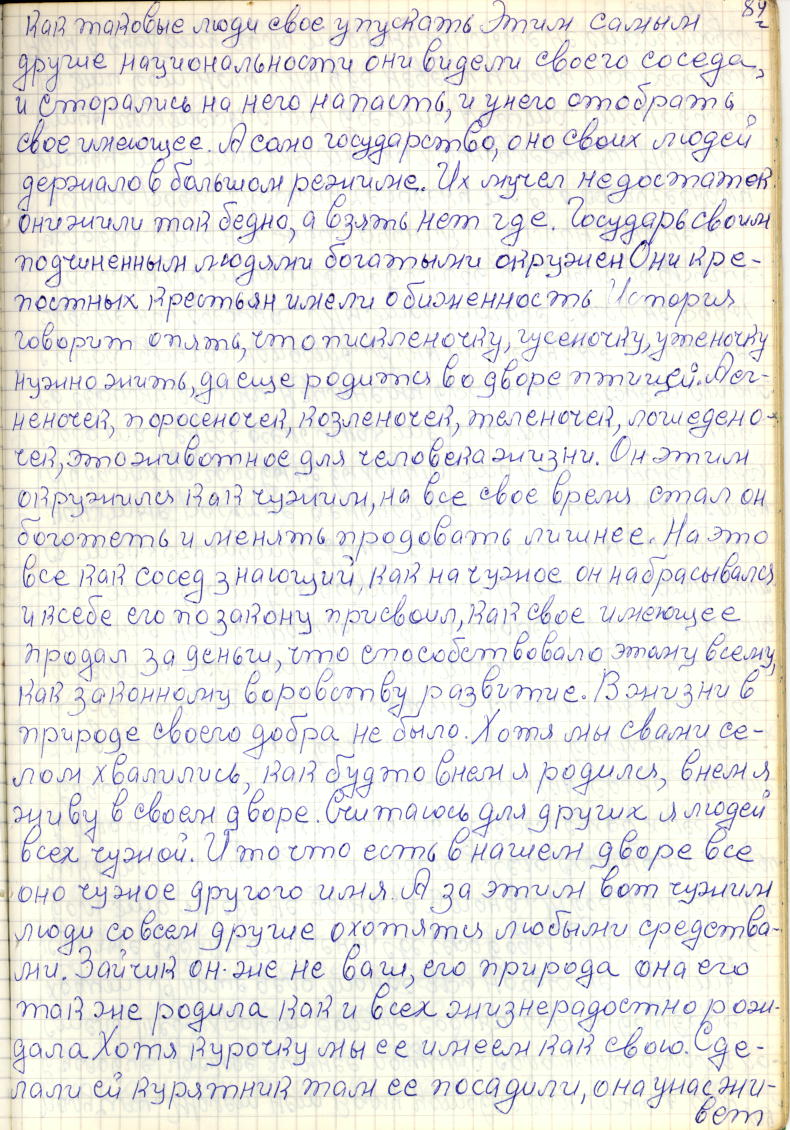 84
как таковые люди свое упускать Этим самым
другие национальности они видели своего соседа,
и сторались на него напасть, и у него отобрать
свое имеющее. А само государство, оно своих людей
держало в большом режиме. Их мучел недостаток
они жили так бедно, а взять нет где. Государь своим
подчиненным людями богатыми окружен Они кре-
постных крестьян имели обиженность История
говорит опять, что пискленочку, гусеночку, утеночку
нужно жить, да еще родится во дворе птицей. Ляг-
неночек, поросеночек, козленочек, теленочек, лошедено-
чек, это животное для человека жизни. Он этим
окружился как чужим, на все свое время стал он
боготеть и менять продовать лишнее. На это
все как сосед знающий, как на чужое он набрасывался
и к себе его по закону присвоил, как свое имеющее
продал за деньги, что способствовало этаму всему,
как законному воровству развитие. В жизни в
природе своего добра не было. Хотя мы свами се-
лом хвалились, как будто в нем я родился, в нем я
живу в своем дворе. Считаюсь для других я людей
всех чужой. И то что есть в нашем дворе все
оно чужое другого имя. А за этим вот чужим
люди совсем другие охотятся любыми средства-
ми. Зайчик он же не ваш, его природа она его
так же родила как и всех жизнерадостно рож-
дала Хотя курочку мы ее имеем как свою. Сде-
лали ей курятник там ее посадили, она у нас жи-
вет